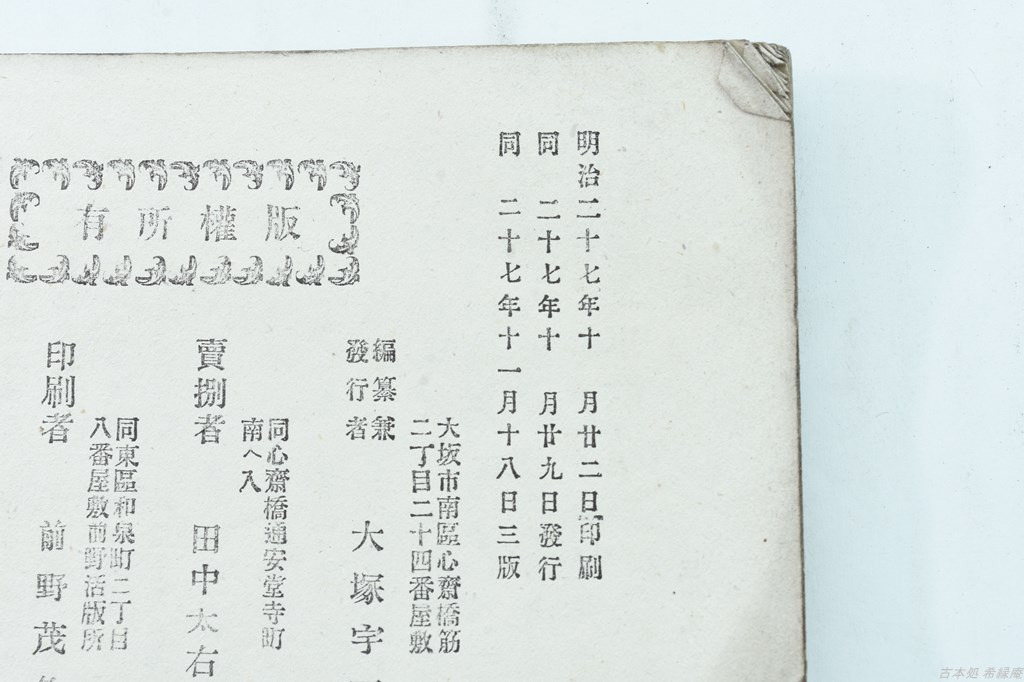 明治二十七年十月廿二日印刷
同二十七年十月廿九日發行
同二十七年十一月十八日三版
大坂市南區心齋橋筋
二丁目二十四番屋敷
編纂兼
發行者
大塚宇
同心齋橋通安堂寺町
南へ入
賣捌者
田中太右
同東區和泉町二丁目
八番屋敷前野活版所
印刷者
前野茂
版權所有
古本処 希縁庵